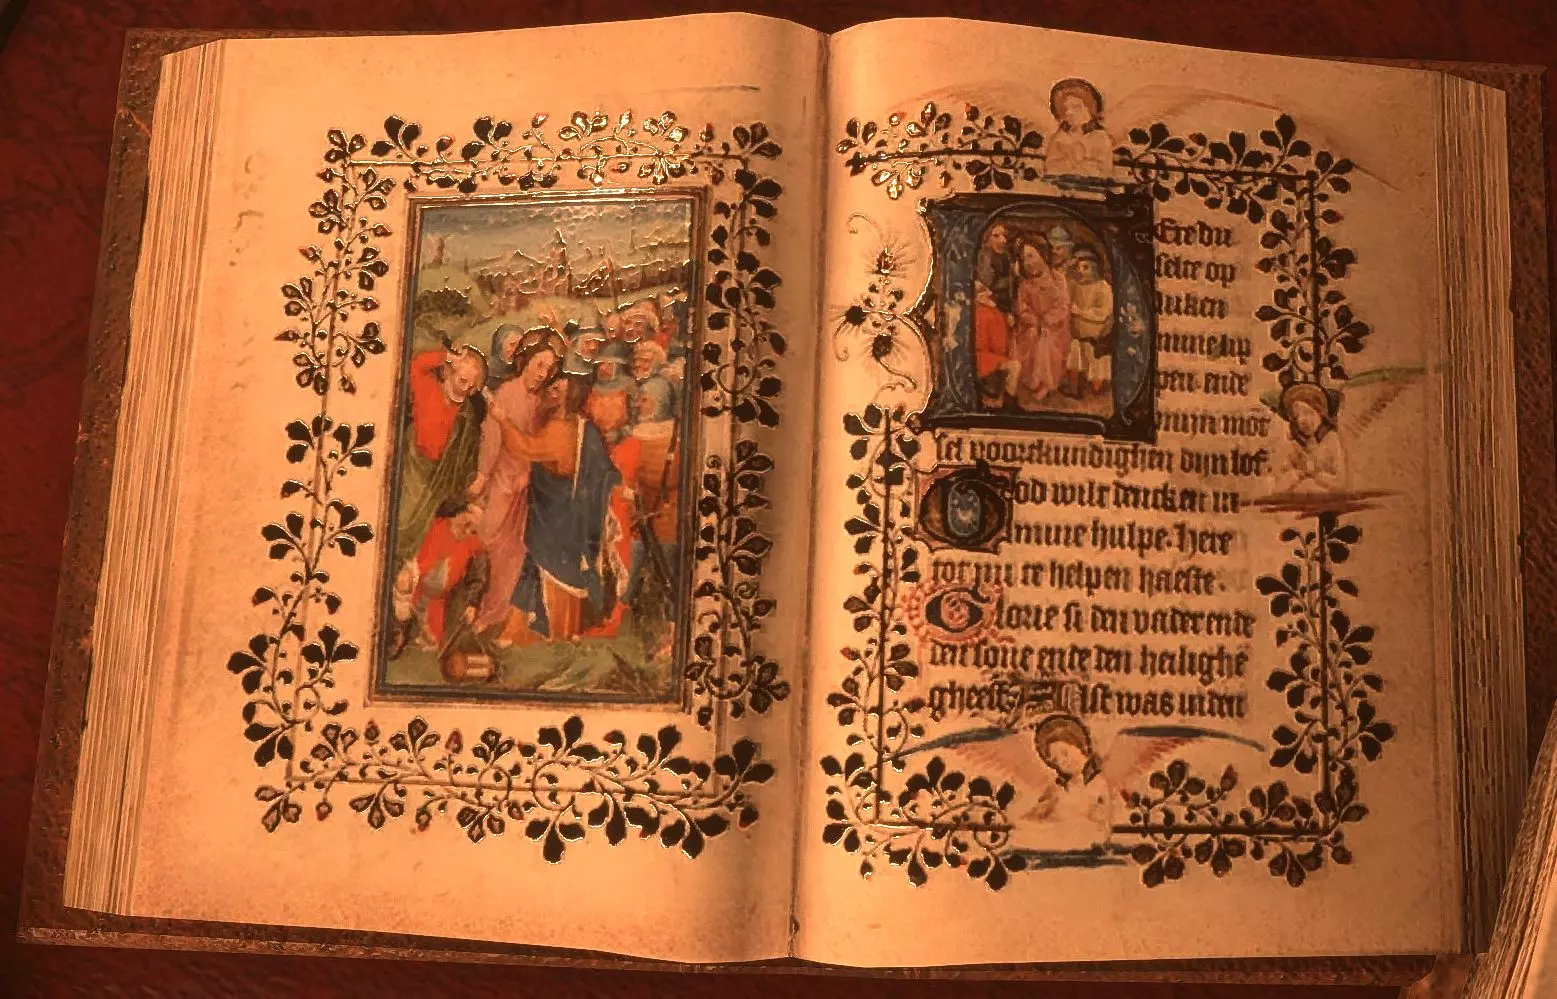 Here du
selte op
luken
mine lip
pen ende
mijn mōt
sel voortkundighen dijn lof.
God wilt dencken in
mine hulpe. Here
tot mi te helpen haeste.
Glorie si den vader ende
den sone ende den heilighē
gheest Alst was in den